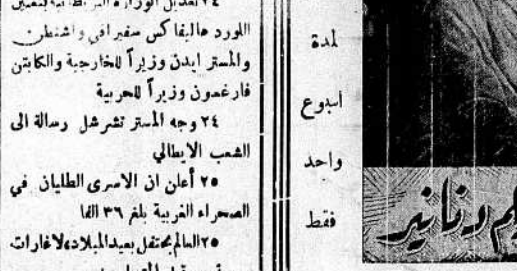 ٢٤ تعديل الوزارة البريطانية بتعيين
اللورد هاليفاكس سفيرا في واشنطن
والمستر ايدن وزيراً للخارجية والكابتن
فارغسون وزيراً للحربية
٢٤ وجه المستر تشرشل رسالة الى
الشعب الايطالي
٢٥ أعلن ان الاسرى الطليان في
الصحراء الغربية بلغ ٣٦ الفا
٢٥ العالم يحتفل بعيد الميلاد، لاغارات
لمدة
اسبوع
واحد
فقط
دنانير